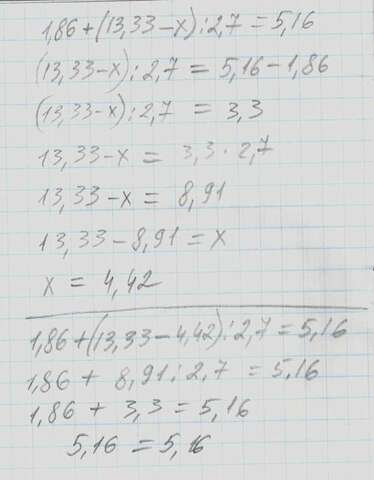 1,86+(13,33-x):2,7=5,16
(13,33-x):2,7=5,16-1,86
(13,33-x):2,7=3,3
13,33-x=3,3·2,7
13,33-x=8,91
13,33-8,91=x
x=4,42
1,86+(13,33-4,42):2,7=5,16
1,86+8,91:2,7=5,16
1,86+3,3=5,16
5,16=5,16